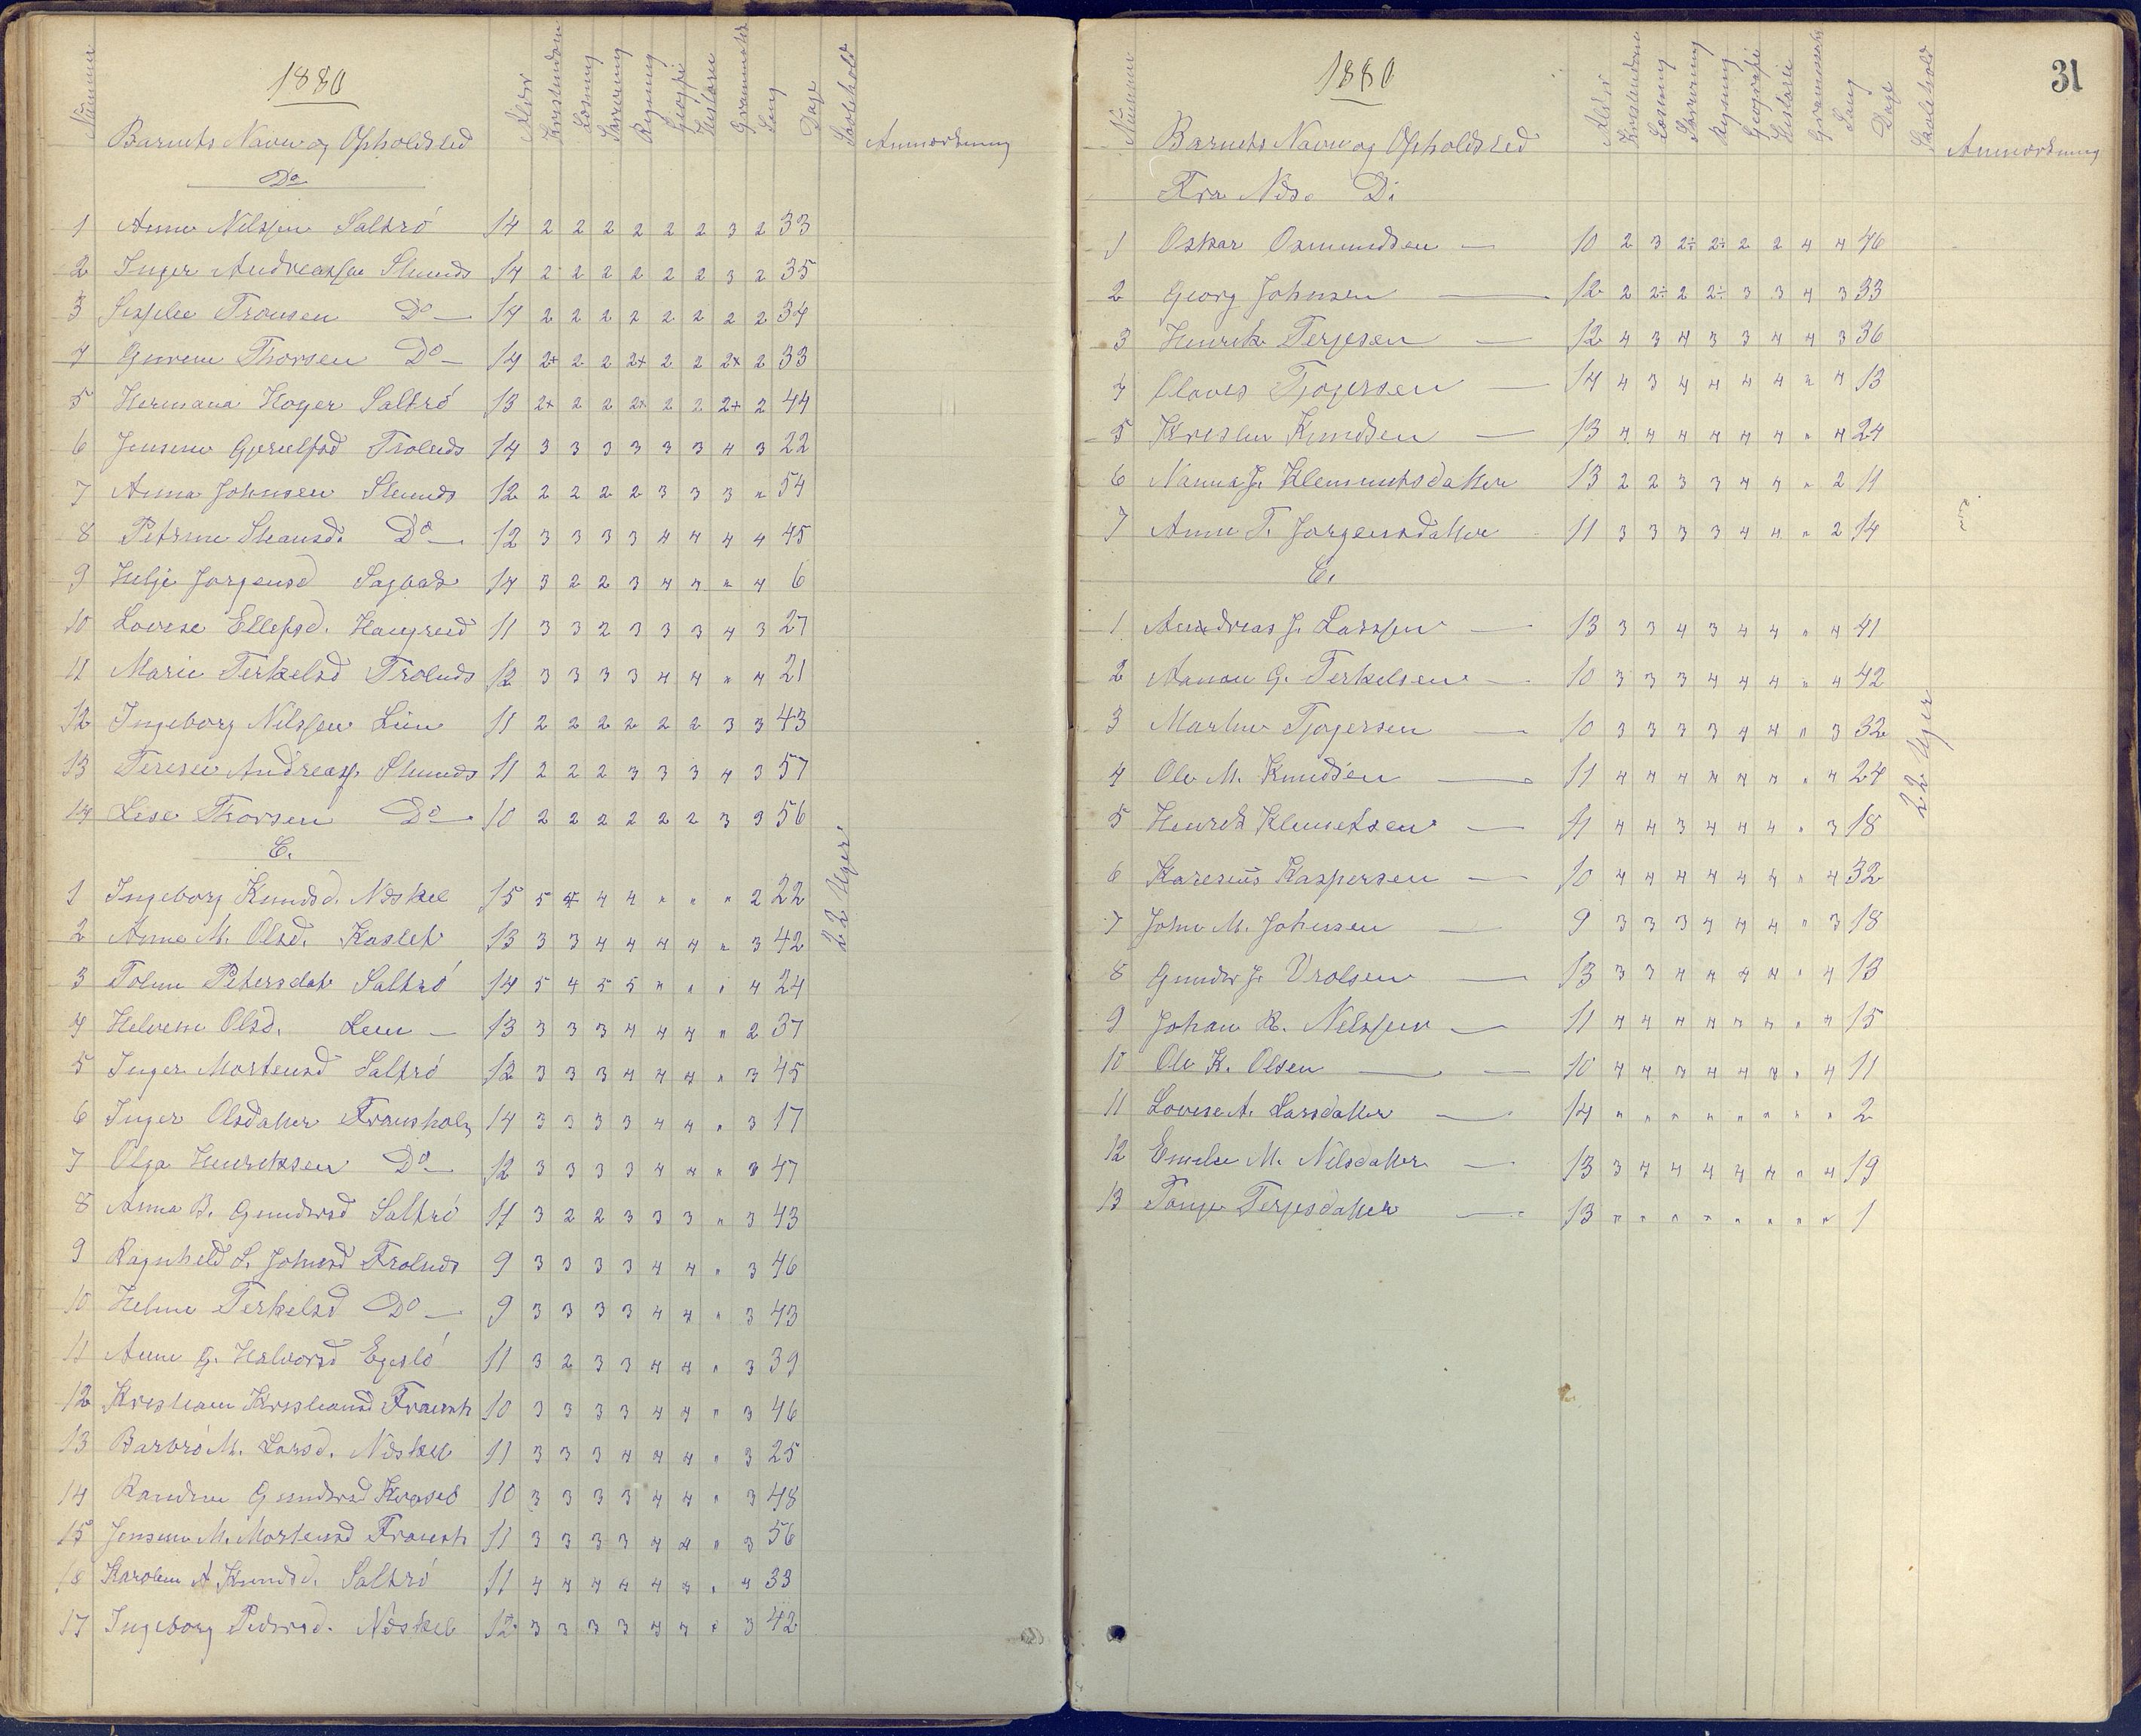 1880
Nummer Barnets Navn og Opholdsted Alder Kristendom Læsning Skrivning Regning Geogrfi Historie Grammatik Sang Dage Skolehold Anmærkning
Do
1 Anne Nilssen Saltrö 14 2 2 2 2 2 2 3 2 33
2 Inger Andreassen Stuends 14 2 2 2 2 2 2 3 2 35
3 Tronsen Do 14 2 2 2 2 2 2 2 2 34
4 Thorsen Do 14 2+ 2 2 2+ 2 2 2+ 2 33
5 Hermana Hoyer Saltrö 13 2+ 2 2 2+ 2 2 2+ 2 44
6 Jensine Gjerulfsd Trolnds 14 3 3 3 3 3 3 4 3 22
7 Anna Johnsen Stuends 12 2 2 2 2 3 3 3 " 54
8 Petrine Do 12 3 3 3 3 4 4 4 4 45
9 Helje Jorgensd 14 3 2 2 3 4 4 " 4 6
10 Lovise Ellefsd. Haugered 11 3 3 2 3 3 3 4 3 27
11 Marie Terkelsd Trolnds 12 3 3 3 3 4 4 " 4 21
12 Ingeborg Nilssen Lien 11 2 2 2 2 2 2 3 3 43
13 Terese Andreass Stuends 11 2 2 2 3 3 3 4 3 57
14 Lise Thorsen Do 10 2 2 2 2 2 2 3 3 56
C.
1 Ingeborg Knudsd. Neskel 15 5 4 4 4 " " " 2 22
2 Anne M. Olsd. Kaslet 13 3 3 4 4 4 4 " 3 42
3 Petersdat Saltrö 14 5 4 5 5 " " " 4 24
4 Olsd. Lien 13 3 3 3 4 4 4 " 2 37
5 Inger Mortensd Saltrö 12 3 3 3 4 4 4 " 3 45
6 Inger Olsdatter Fransholm 14 3 3 3 3 4 4 " 3 17
7 Olga Henriksen Do 12 3 3 3 3 4 4 " 3 47
8 Anna B. Gundersd Saltrö 14 3 2 2 3 3 3 " 3 43
9 Ragnhild S. Johnsd Trolnds 9 3 3 3 3 4 4 " 3 46
10 Helene Terkelsd Do 9 3 3 3 3 4 4 " 3 43
11 Anne G. Halvorsd 11 3 2 3 3 4 4 " 3 39
12 Kristiane Kristiansd Fransh 10 3 3 3 3 4 4 " 3 46
13 Barbrö M. Larsd. Neskel 11 3 3 3 4 4 4 " 3 25
14 Randine Gundersd 10 3 3 3 3 4 4 " 3 48
15 Jensine M. Mortensd Fransh 11 3 3 3 3 4 4 " 3 56
16 Karoline A. Knudsd. Saltrö 11 4 4 4 4 4 4 " 4 33
17 Ingeborg Pedersd. Neskel 12 3 3 3 3 4 4 " 3 42
22 Uger
31
1880
Nummer Barnets Navn og Opholdsted Alder Kristendom Læsning Skrivning Regning Geografi Historie Grammatik Sang Dage Skolehold Anmærkning
Fra Nds. D:
1 Oskar Osmundsen 10 2 3 2÷ 2÷ 2 2 4 4 46
2 Georg Johnsen 12 2 2÷ 2 2÷ 3 3 4 3 33
3 Henrik Terjesen 12 4 3 4 3 3 4 4 3 36
4 Olaves Tjogersen 14 4 3 4 4 4 4 " 4 13
5 Kristen Knudsen 13 4 4 4 4 4 4 " 4 24
6 Nanna J. Klemmetsdatter 13 2 2 3 3 4 4 " 2 11
7 Anne T. Jorgensdatter 11 3 3 3 3 4 4 " 2 14
C.
1 Andreas J. Larssen 13 3 3 4 3 4 4 " 4 41
2 G. Terkelsen 10 3 3 3 4 4 4 " 4 42
3 Martin Tjogersen 10 3 3 3 3 4 4 " 3 32
4 Ole M. Knudsen 11 4 4 4 4 4 4 " 4 24
5 Henrik Klemetsen 11 4 4 3 4 4 4 " 3 18
6 Karenius Kaspersen 10 4 4 4 4 4 4 " 4 32
7 John M. Johnsen 9 3 3 3 4 4 4 " 3 18
8 Gunder J. Vrolsen 13 3 3 4 4 4 4 " 4 13
9 Johan R. Nilssen 11 4 4 4 4 4 4 " 4 15
10 Ole K. Olsen 10 4 4 3 4 4 4 " 4 11
11 Lovise A. Larsdatter 14 " " " " " " " " 2
12 Emelie M. Nilsdatter 13 3 4 4 4 4 4 " 4 19
13 Tonje Terjesdatter 13 " " " " " " " " 1
22 Uger